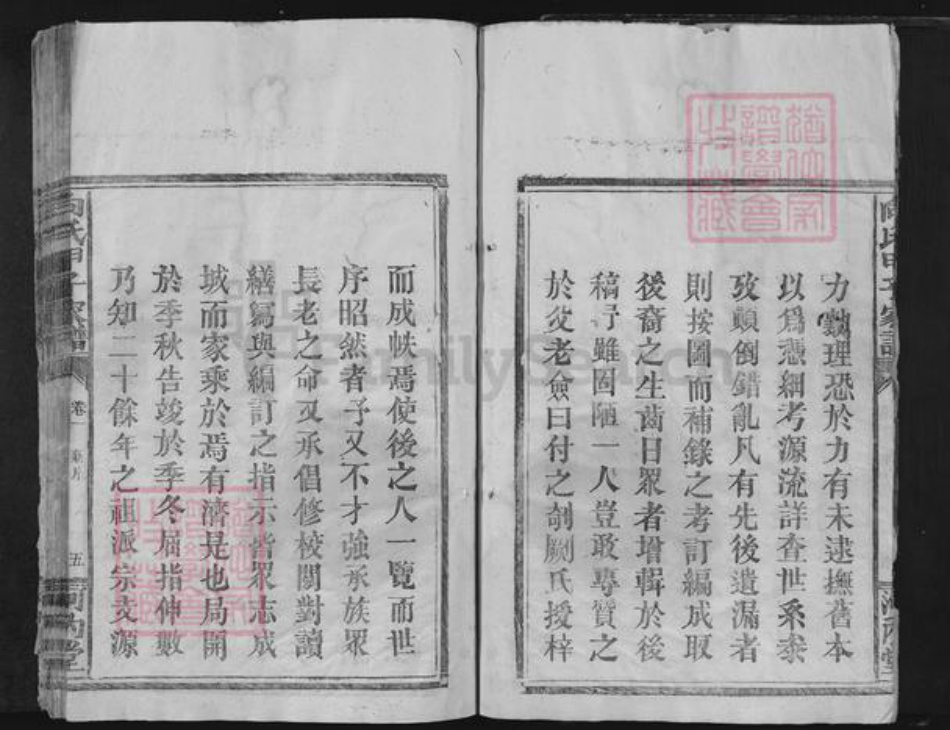 力勷理恐於力有未逮撫舊本
以爲憑細考源流詳查世系叅
攷顛倒錯亂凡有先後遺漏者
則按圖而補錄之考訂編成取
後裔之生齒日眾者增輯於後
稿予雖固陋一人豈敢專質之
於父老僉曰付之剞劂氏授梓
而成帙焉使後之人一覽而世
序昭然者予又不才強承族眾
長老之命又承倡修校閱對讀
繕寫與編訂之指示皆眾志成
城而家乘於焉有濟是也局開
於季秋告竣於季冬屈指伸數
乃知二十餘年之祖派宗支源
卷一
五
FamilySearch